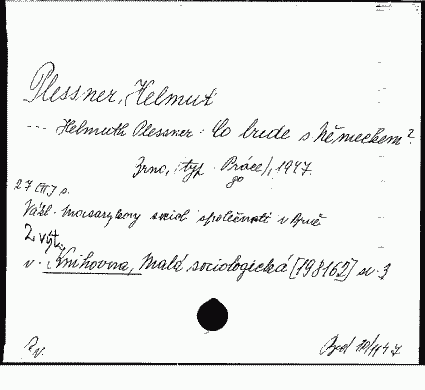 Plessner, Helmut
--- Helmuth Plessner: Co bude s Německem?
Brno, (typ. Práce), 1947.
go
27 [III] s.
Vyšl. Masarykovy sociol. společnosti v Brně
2. výt.
v: Knihovna, Malá sociologická [198162] sv. 3
Rv. 10/11 47